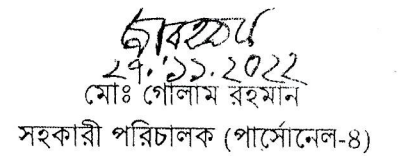 ২৭.১১.2022
মোঃ গোলাম রহমান
সহকারী পরিচালক (পার্সোনেল-৪)